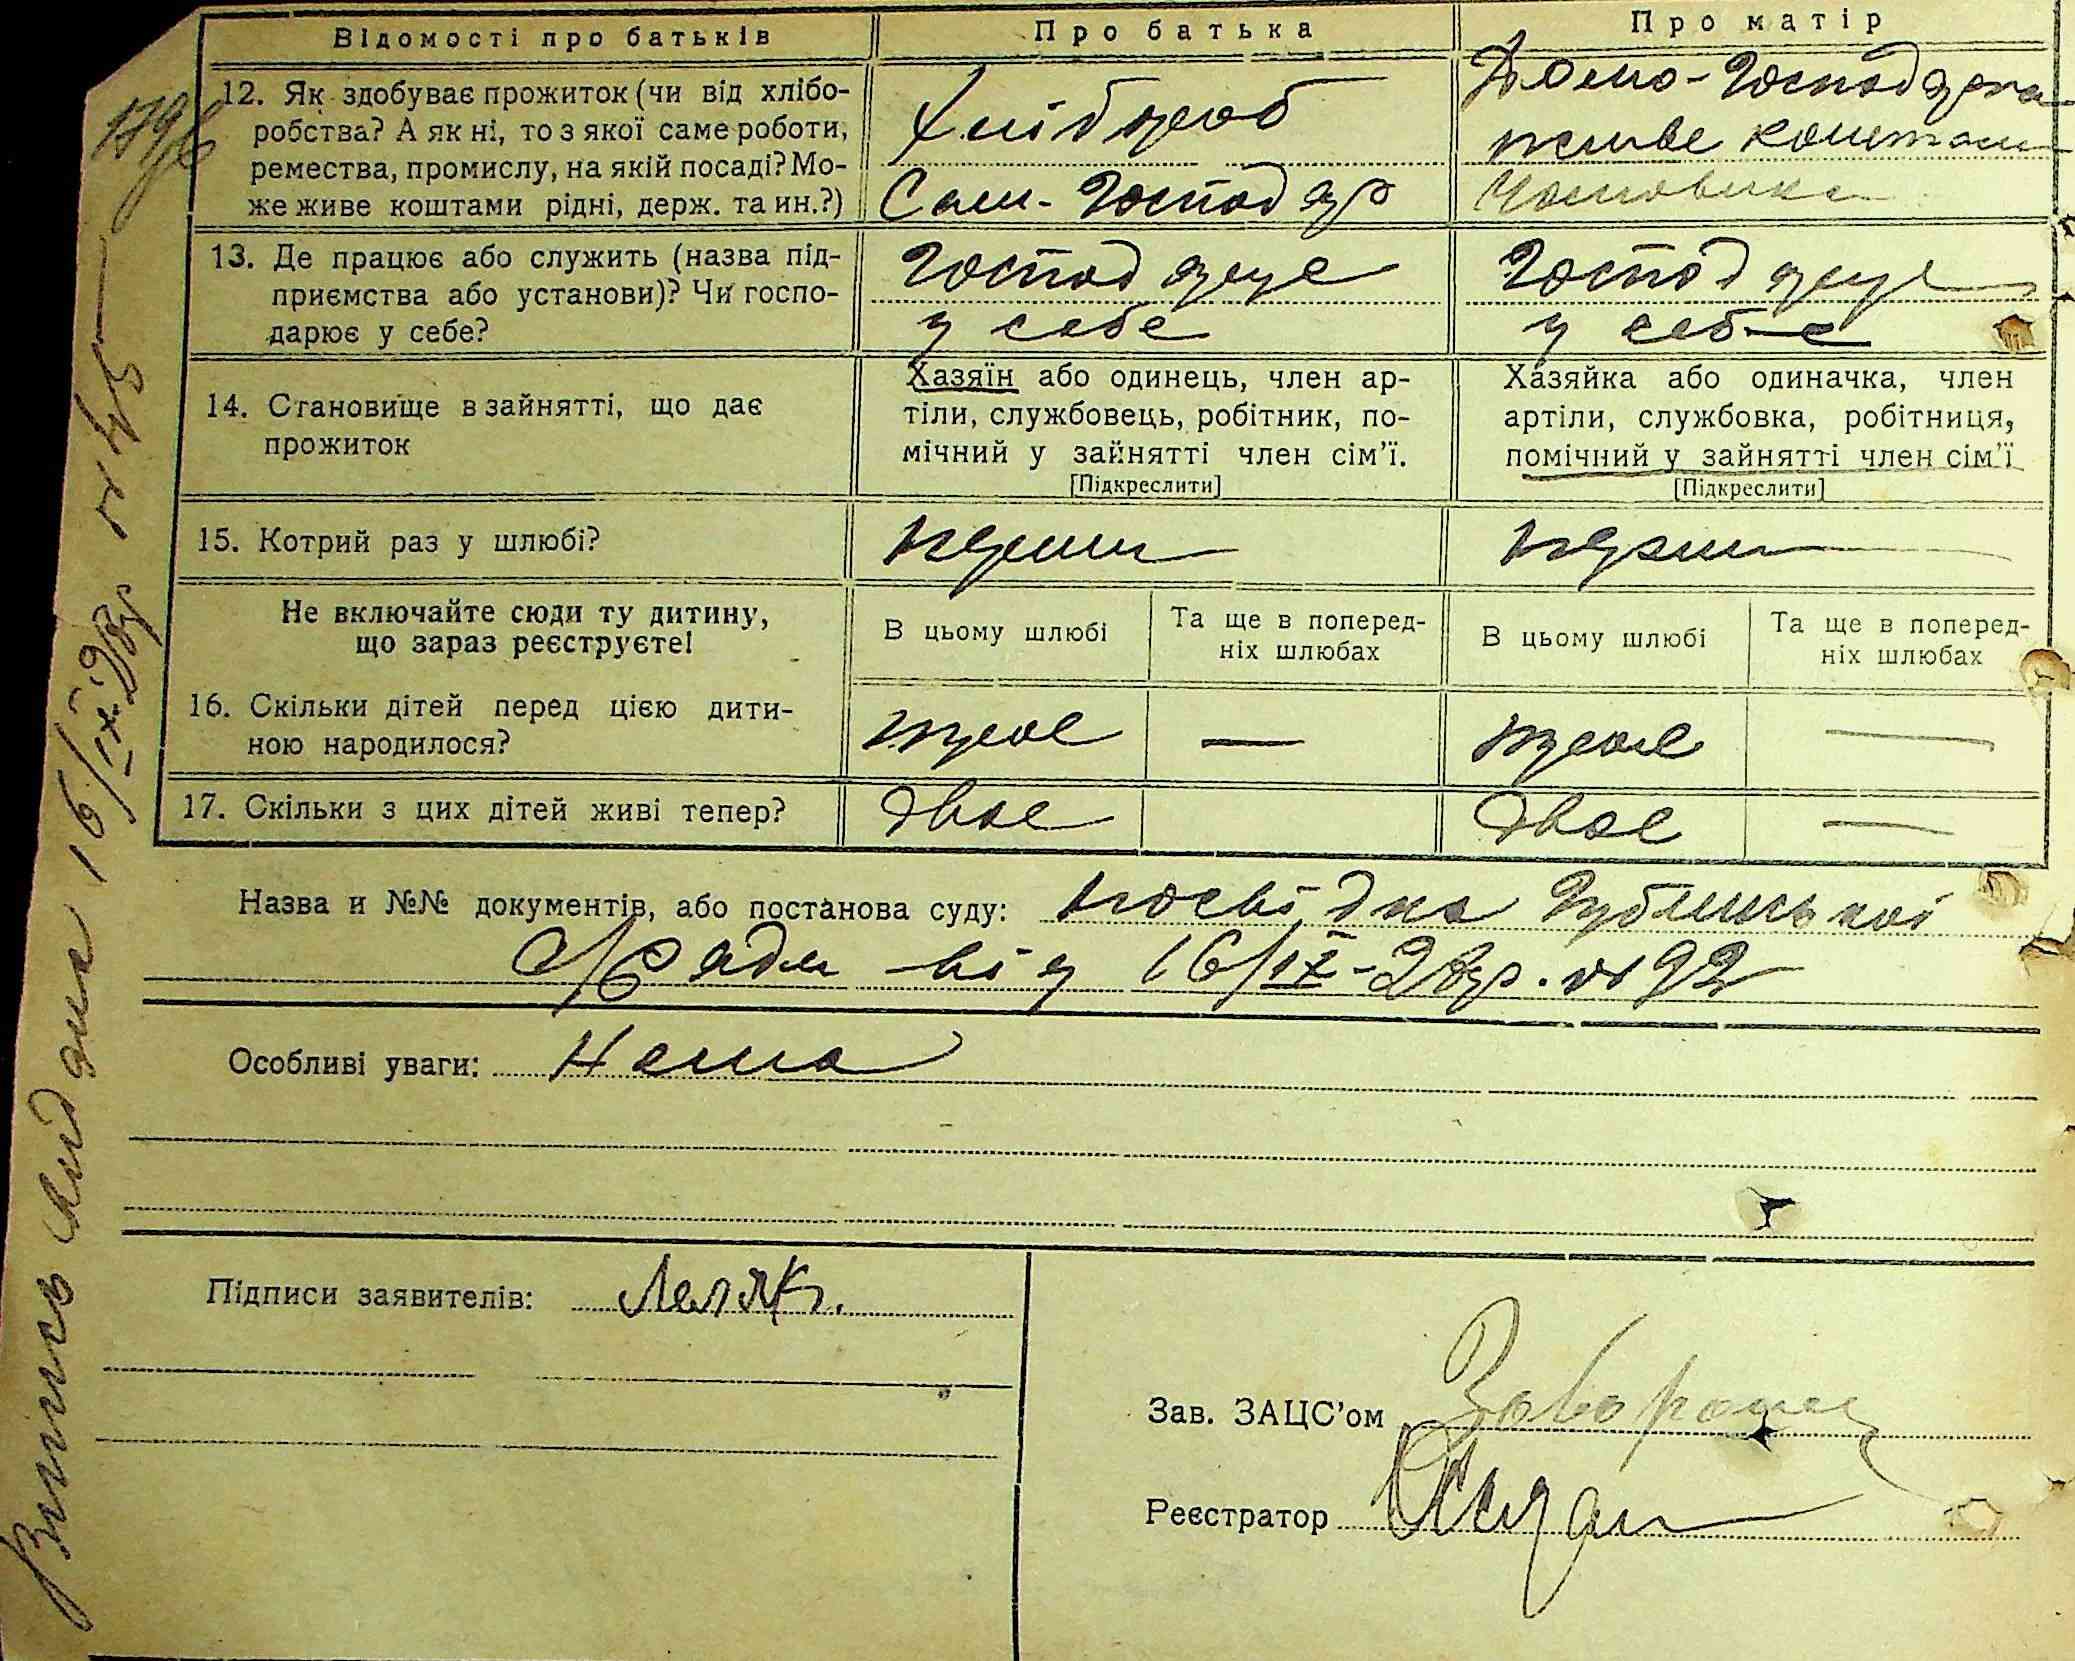 Відомості про батьків
Про батька
Про матір
12. Як здобуває прожиток (чи від хлібо-
робства? А як ні, то з якої саме роботи,
ремества, промислу, на якій посаді? Мо-
же живе коштами рідні, держ. та ин.?)
Хлібороб
Сам-Господар
Домо-Господарка
живе коштами
Чоловіка
13. Де працює або служить (назва під-
приємства або установи)? Чи госпо-
дарює у себе?
Господарує
у себе
Господарує
у себе
14. Становище в зайнятті, що дає
прожиток
Хазяїн або одинець, член ар-
тіли, службовець, робітник, по-
мічний у зайнятті член сім'ї.
[Підкреслити]
Хазяйка або одиначка, член
артіли, службовка, робітниця,
помічний у зайнятті член сім'ї
[Підкреслити]
15. Котрий раз у шлюбі?
перши
перши
Не включайте сюди ту дитину,
що зараз реєструєте!
В цьому шлюбі
Та ще в поперед-
ніх шлюбах
В цьому шлюбі
Та ще в поперед-
ніх шлюбах
16. Скільки дітей перед цією дити-
ною народилося?
троє
—
троє
—
17. Скільки з цих дітей живі тепер?
двоє
двоє
—
Назва и №№ документів, або постанова суду: посвідка
С/Ради від 16/IX-28р. № 92
Особливі уваги: Нема
Підписи заявителів:
Зав. ЗАЦС'ом
Реєстратор
Випись видана 16/IX-28р № 45
179/б